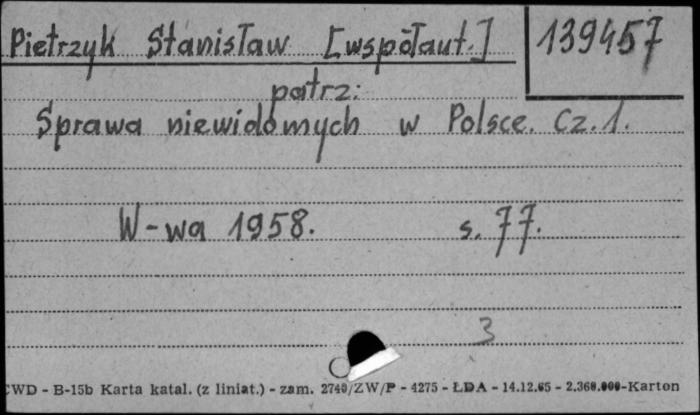 Pietrzyk Stanisław [współaut.] 139457
patrz:
Sprawa niewidomych w Polsce. Cz. 1.
W-wa 1958. s. 77.
3
CWD - B-15b Karta katal. (z liniat.) - zam. 2740/ZW/P - 4275 - ŁDA - 14.12.65 - 2.360.000-Karton